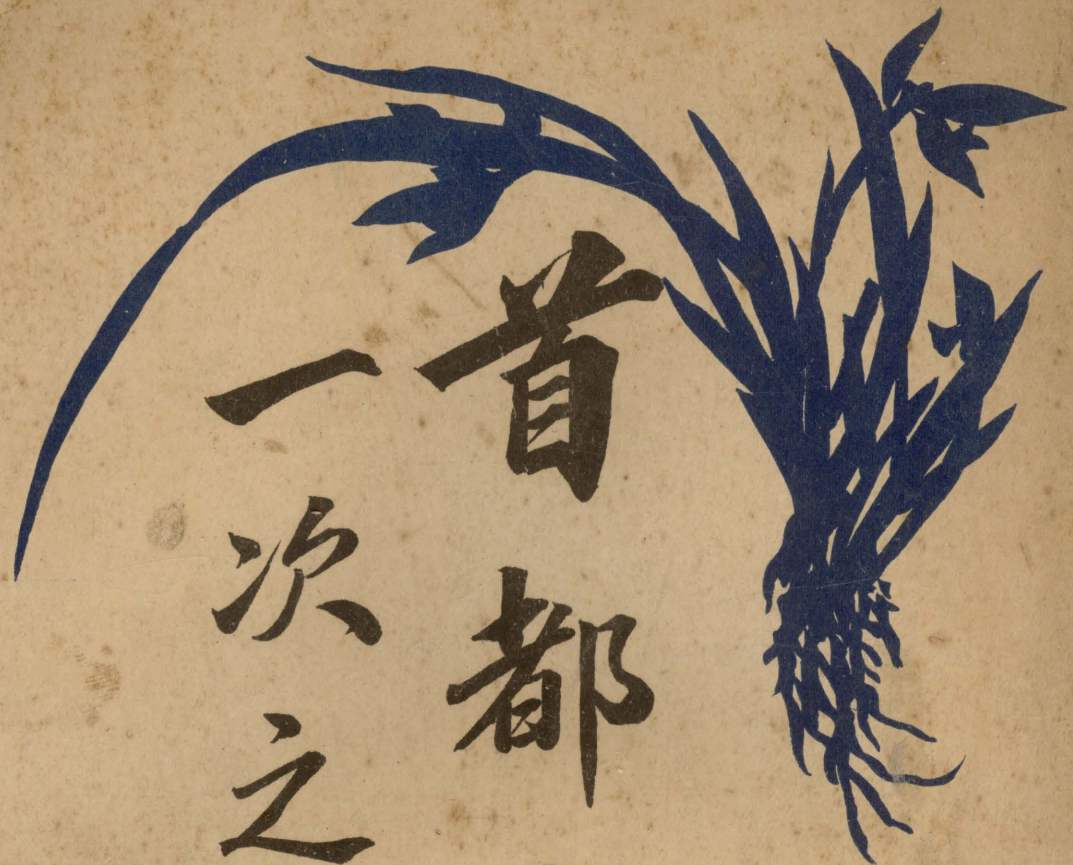 首都
一次之